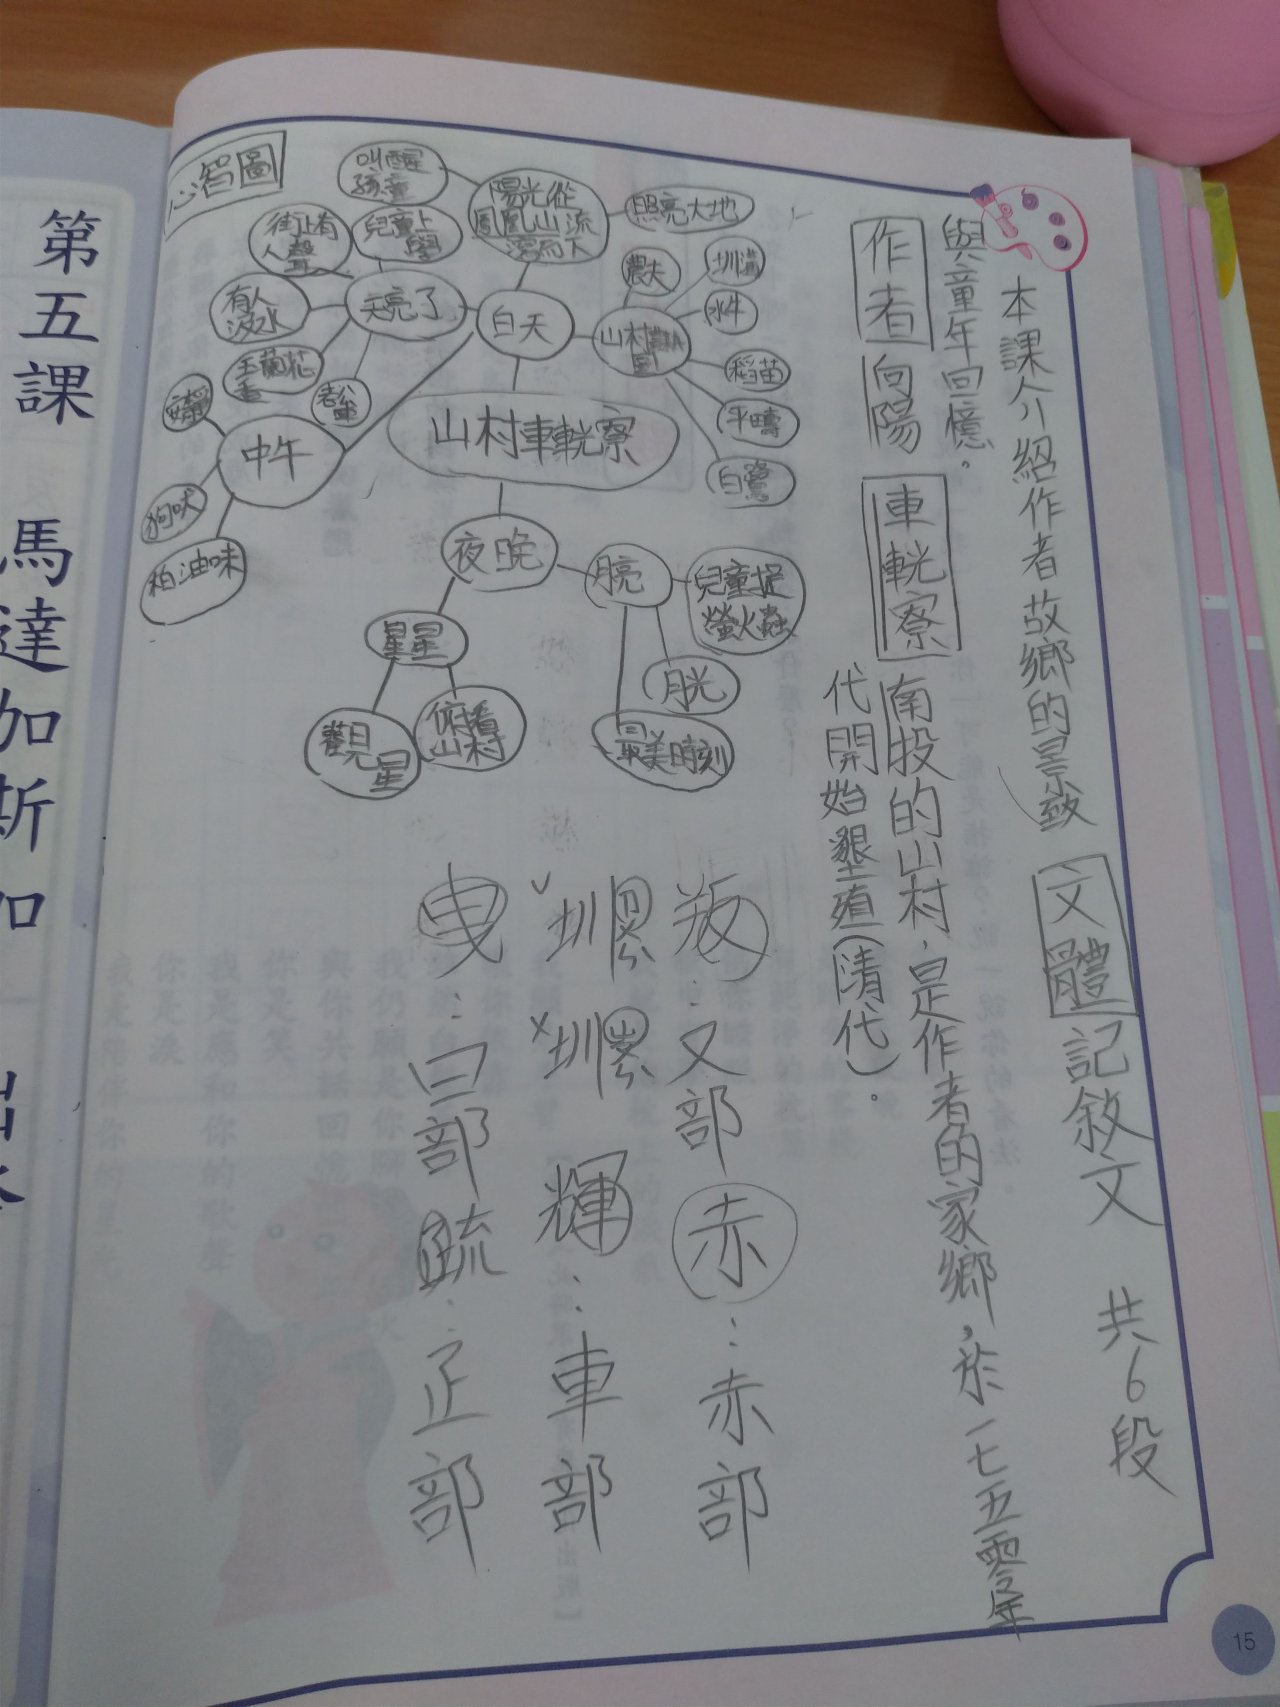 本課介紹作者故鄉的景致
與童年回憶。
文體 記敘文 共6段
作者 向陽
車輄寮 南投的山村,是作者的家鄉,於一七五零年
代開始墾殖(清代)。
心智圖
山村車輄寮
白天
陽光從鳳凰山流瀉而下
叫醒孩童
照亮大地
天亮了
兒童上學
街上有人聲
有人汲水
玉蘭花香
中午
狗吠
柏油味
農夫
圳溝
水牛
稻苗
平疇
白鷺
夜晚
星星
觀星
俯看山村
月亮
兒童捉螢火蟲
月光
最美時刻
叛:又部
赤:赤部
輝:車部
曳:曰部
疏:疋部
第五課 馬達加斯加
15